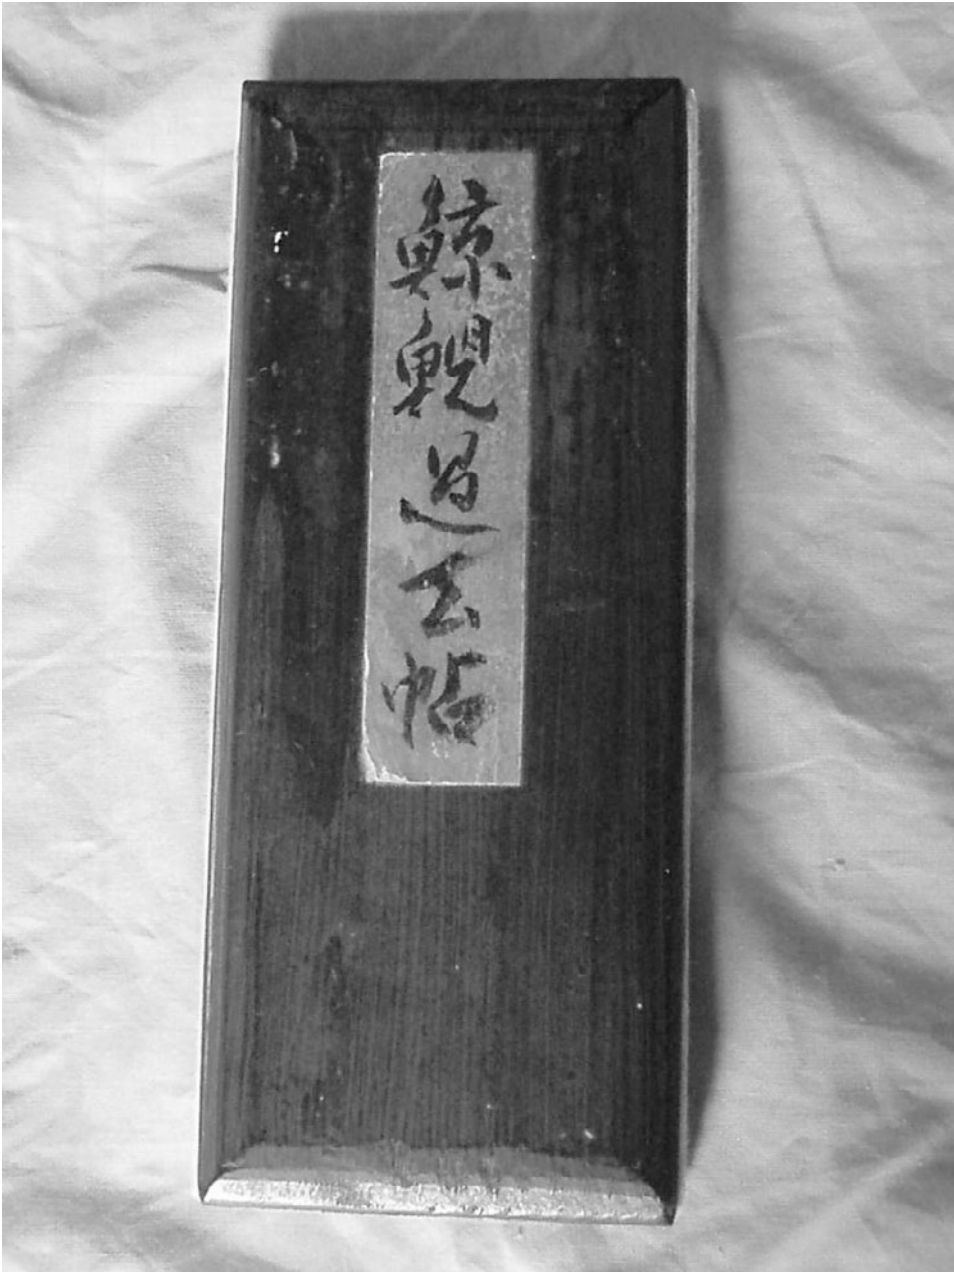 鯨鯢過去帖